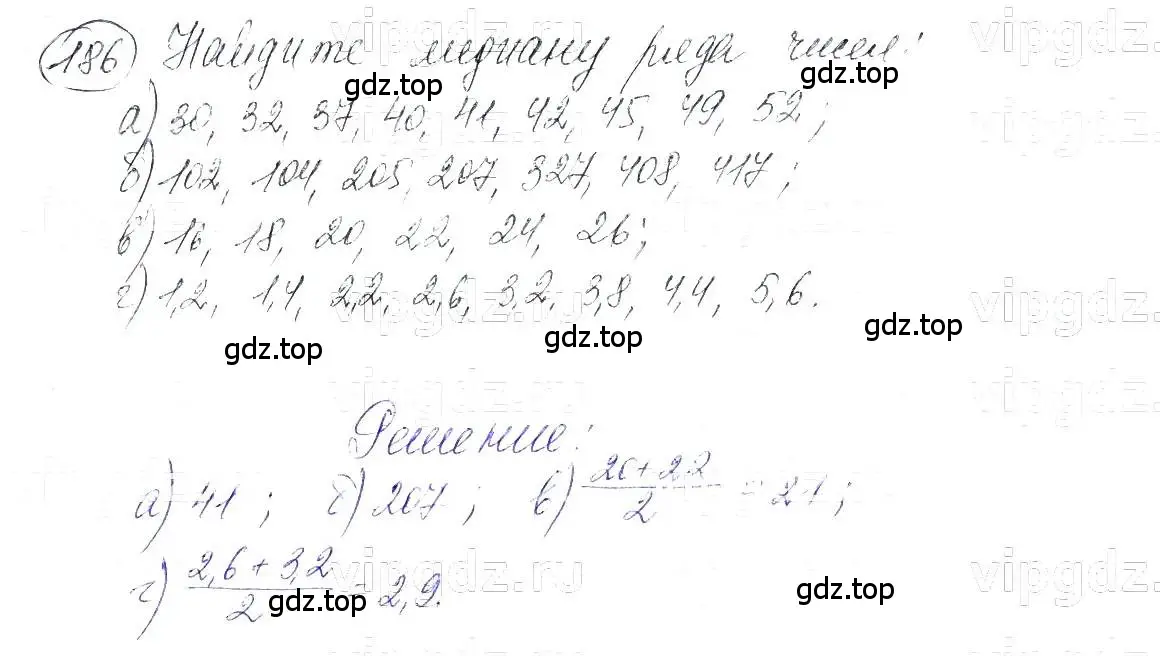 186 Найдите медиану ряда чисел:
gdz.top gdz.top
а) 30, 32, 37, 40, 41, 42, 45, 49, 52;
б) 102, 104, 205, 207, 327, 408, 417;
в) 16, 18, 20, 22, 24, 26;
г) 1,2, 1,4, 2,2, 2,6, 3,2, 3,8, 4,4, 5,6.
gdz.top gdz.top gdz.top
vipgdz.ru
Решение:
а) 41; б) 207; в) \frac{20+22}{2} = 21;
г) \frac{2,6+3,2}{2} = 2,9.
vipgdz.ru
gdz.top gdz.top